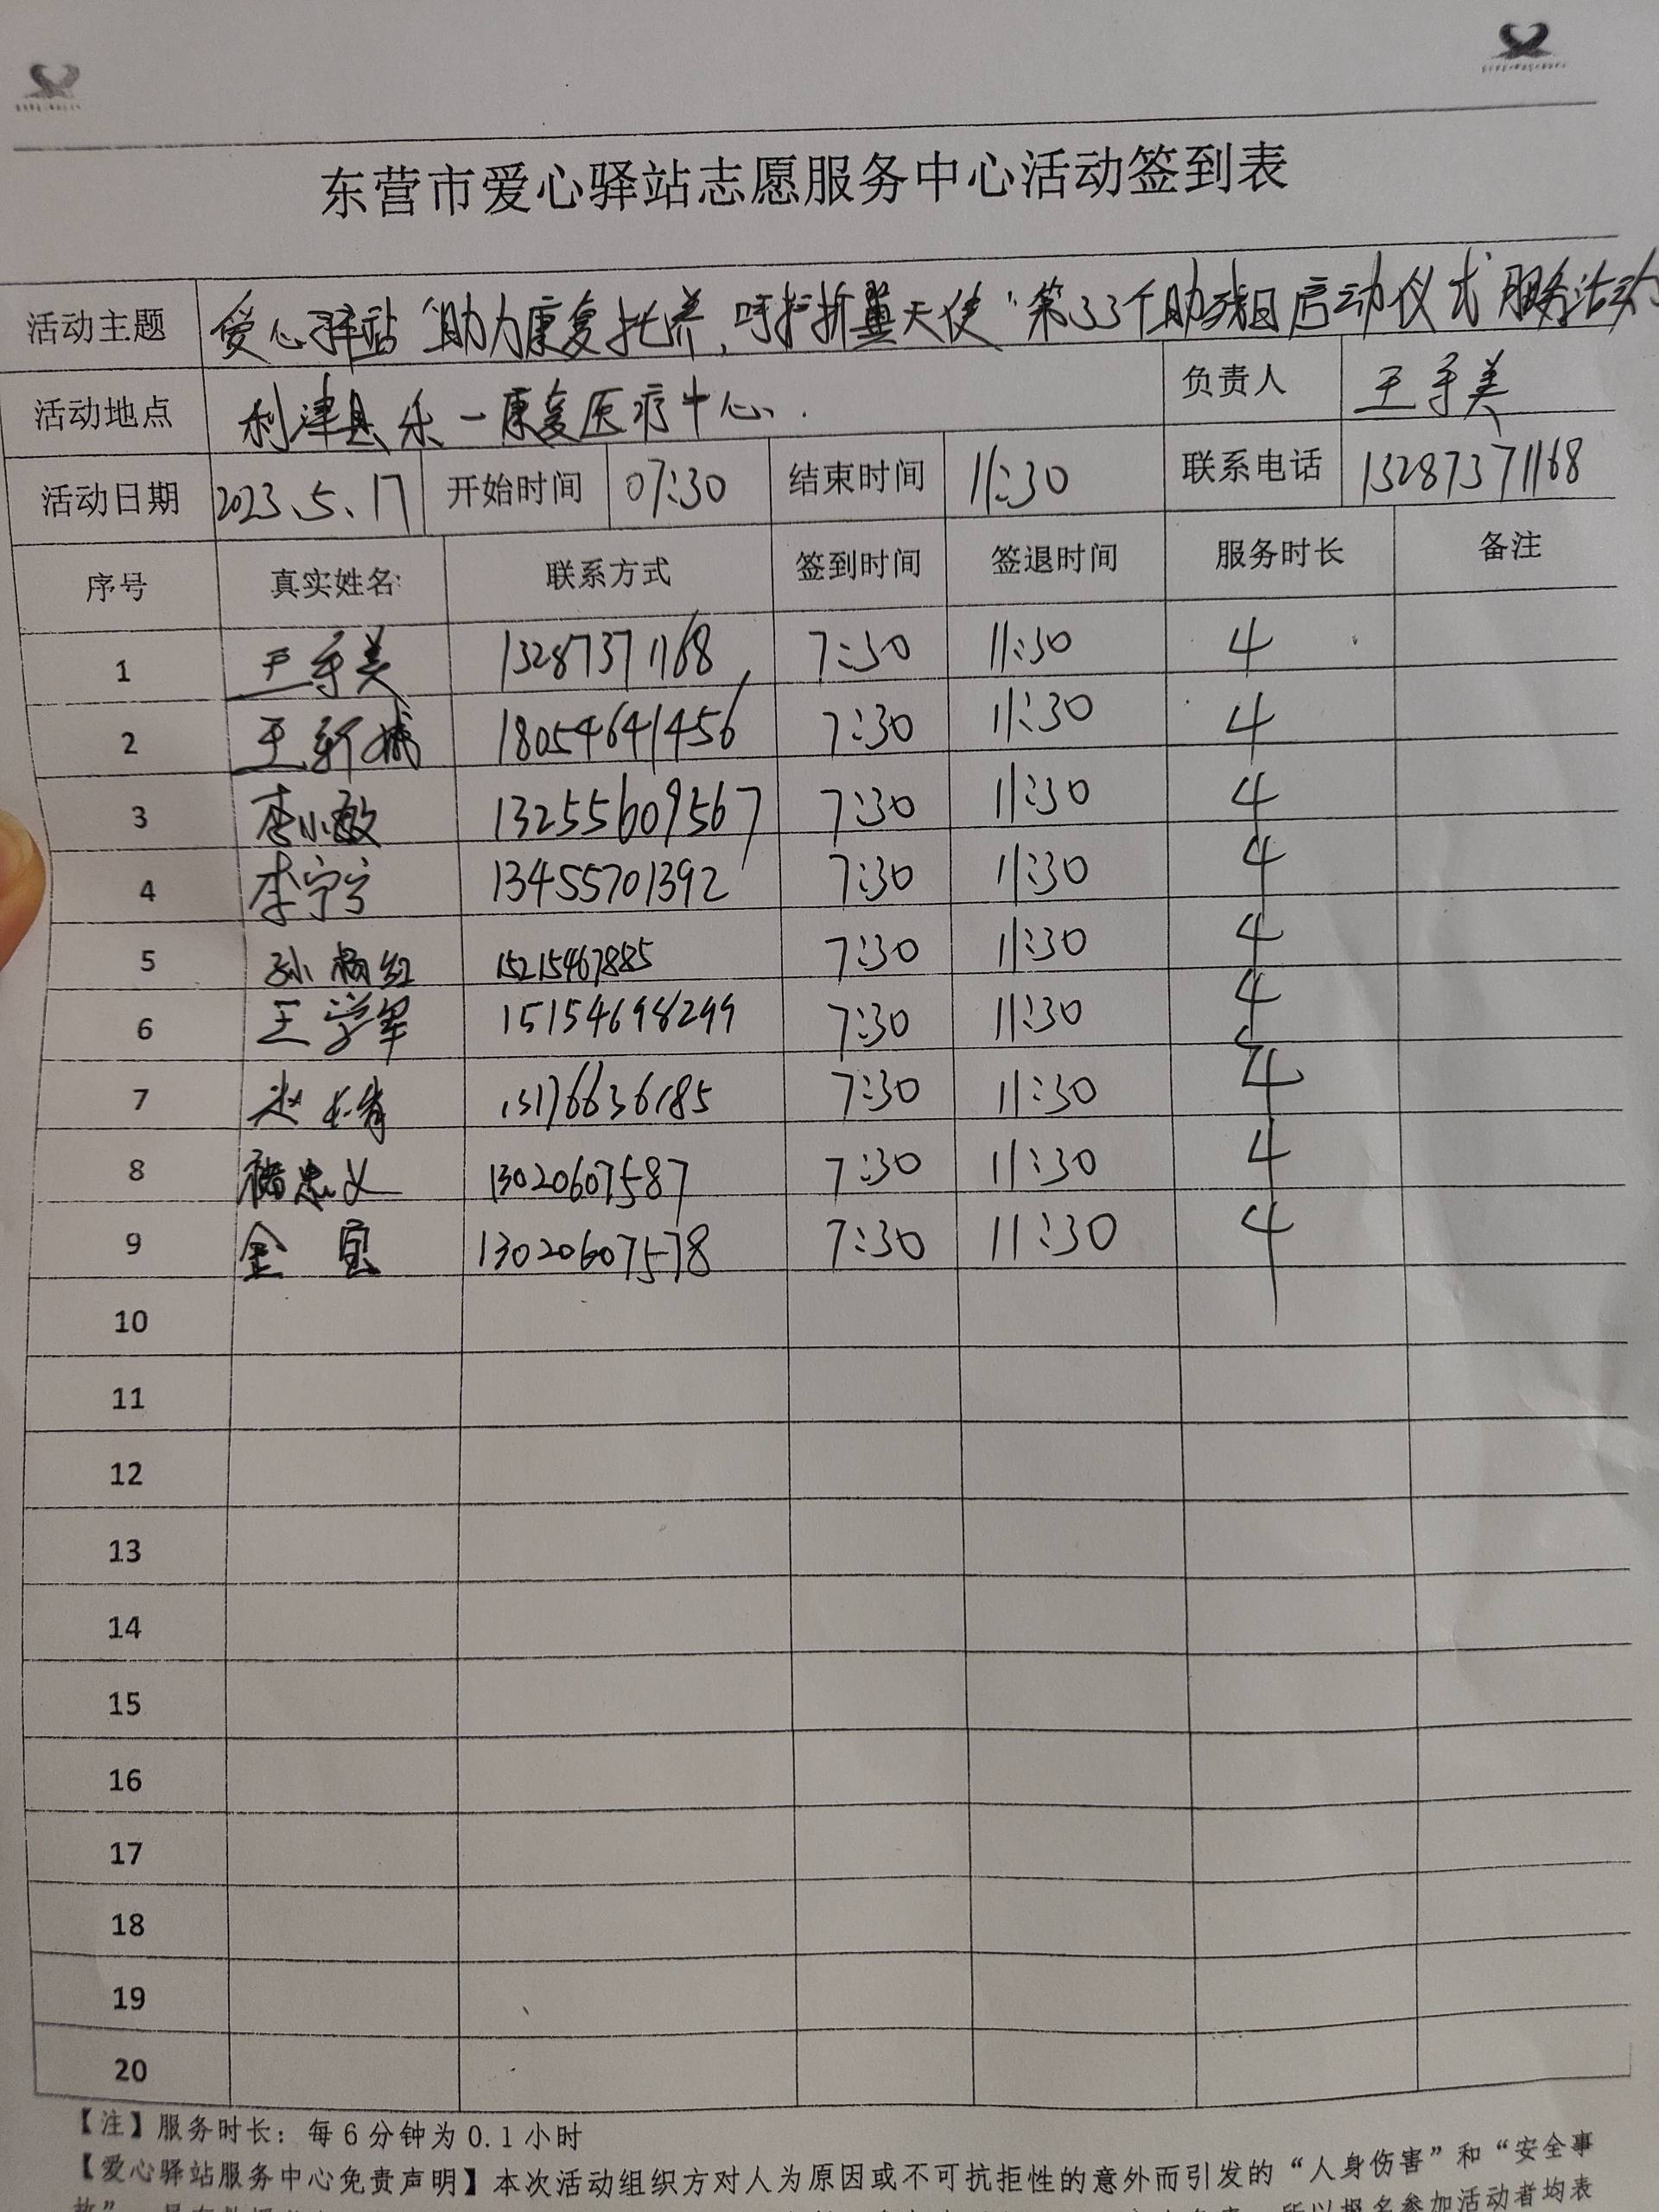 东营市爱心驿站志愿服务中心活动签到表
活动主题 爱心驿站“助力康复托养,呵护折翼天使”第33个助残日启动仪式服务活动
活动地点 利津县乐一康复医疗中心. 负责人 王学美
活动日期 2023.5.17 开始时间 07:30 结束时间 11:30 联系电话 13287371168
序号 真实姓名 联系方式 签到时间 签退时间 服务时长 备注
1 王学美 13287371168 7:30 11:30 4
2 王新城 18054641456 7:30 11:30 4
3 李小敏 13255609567 7:30 11:30 4
4 李宁宁 13455701392 7:30 11:30 4
5 孙梅红 15215467885 7:30 11:30 4
6 王学军 15154698299 7:30 11:30 4
7 赵 13176636185 7:30 11:30 4
8 褚忠义 13020607587 7:30 11:30 4
9 金宝 13020607578 7:30 11:30 4
10
11
12
13
14
15
16
17
18
19
20
【注】服务时长：每6分钟为0.1小时
【爱心驿站服务中心免责声明】本次活动组织方对人为原因或不可抗拒性的意外而引发的“人身伤害”和“安全事
故” 所以报名参加活动者均表